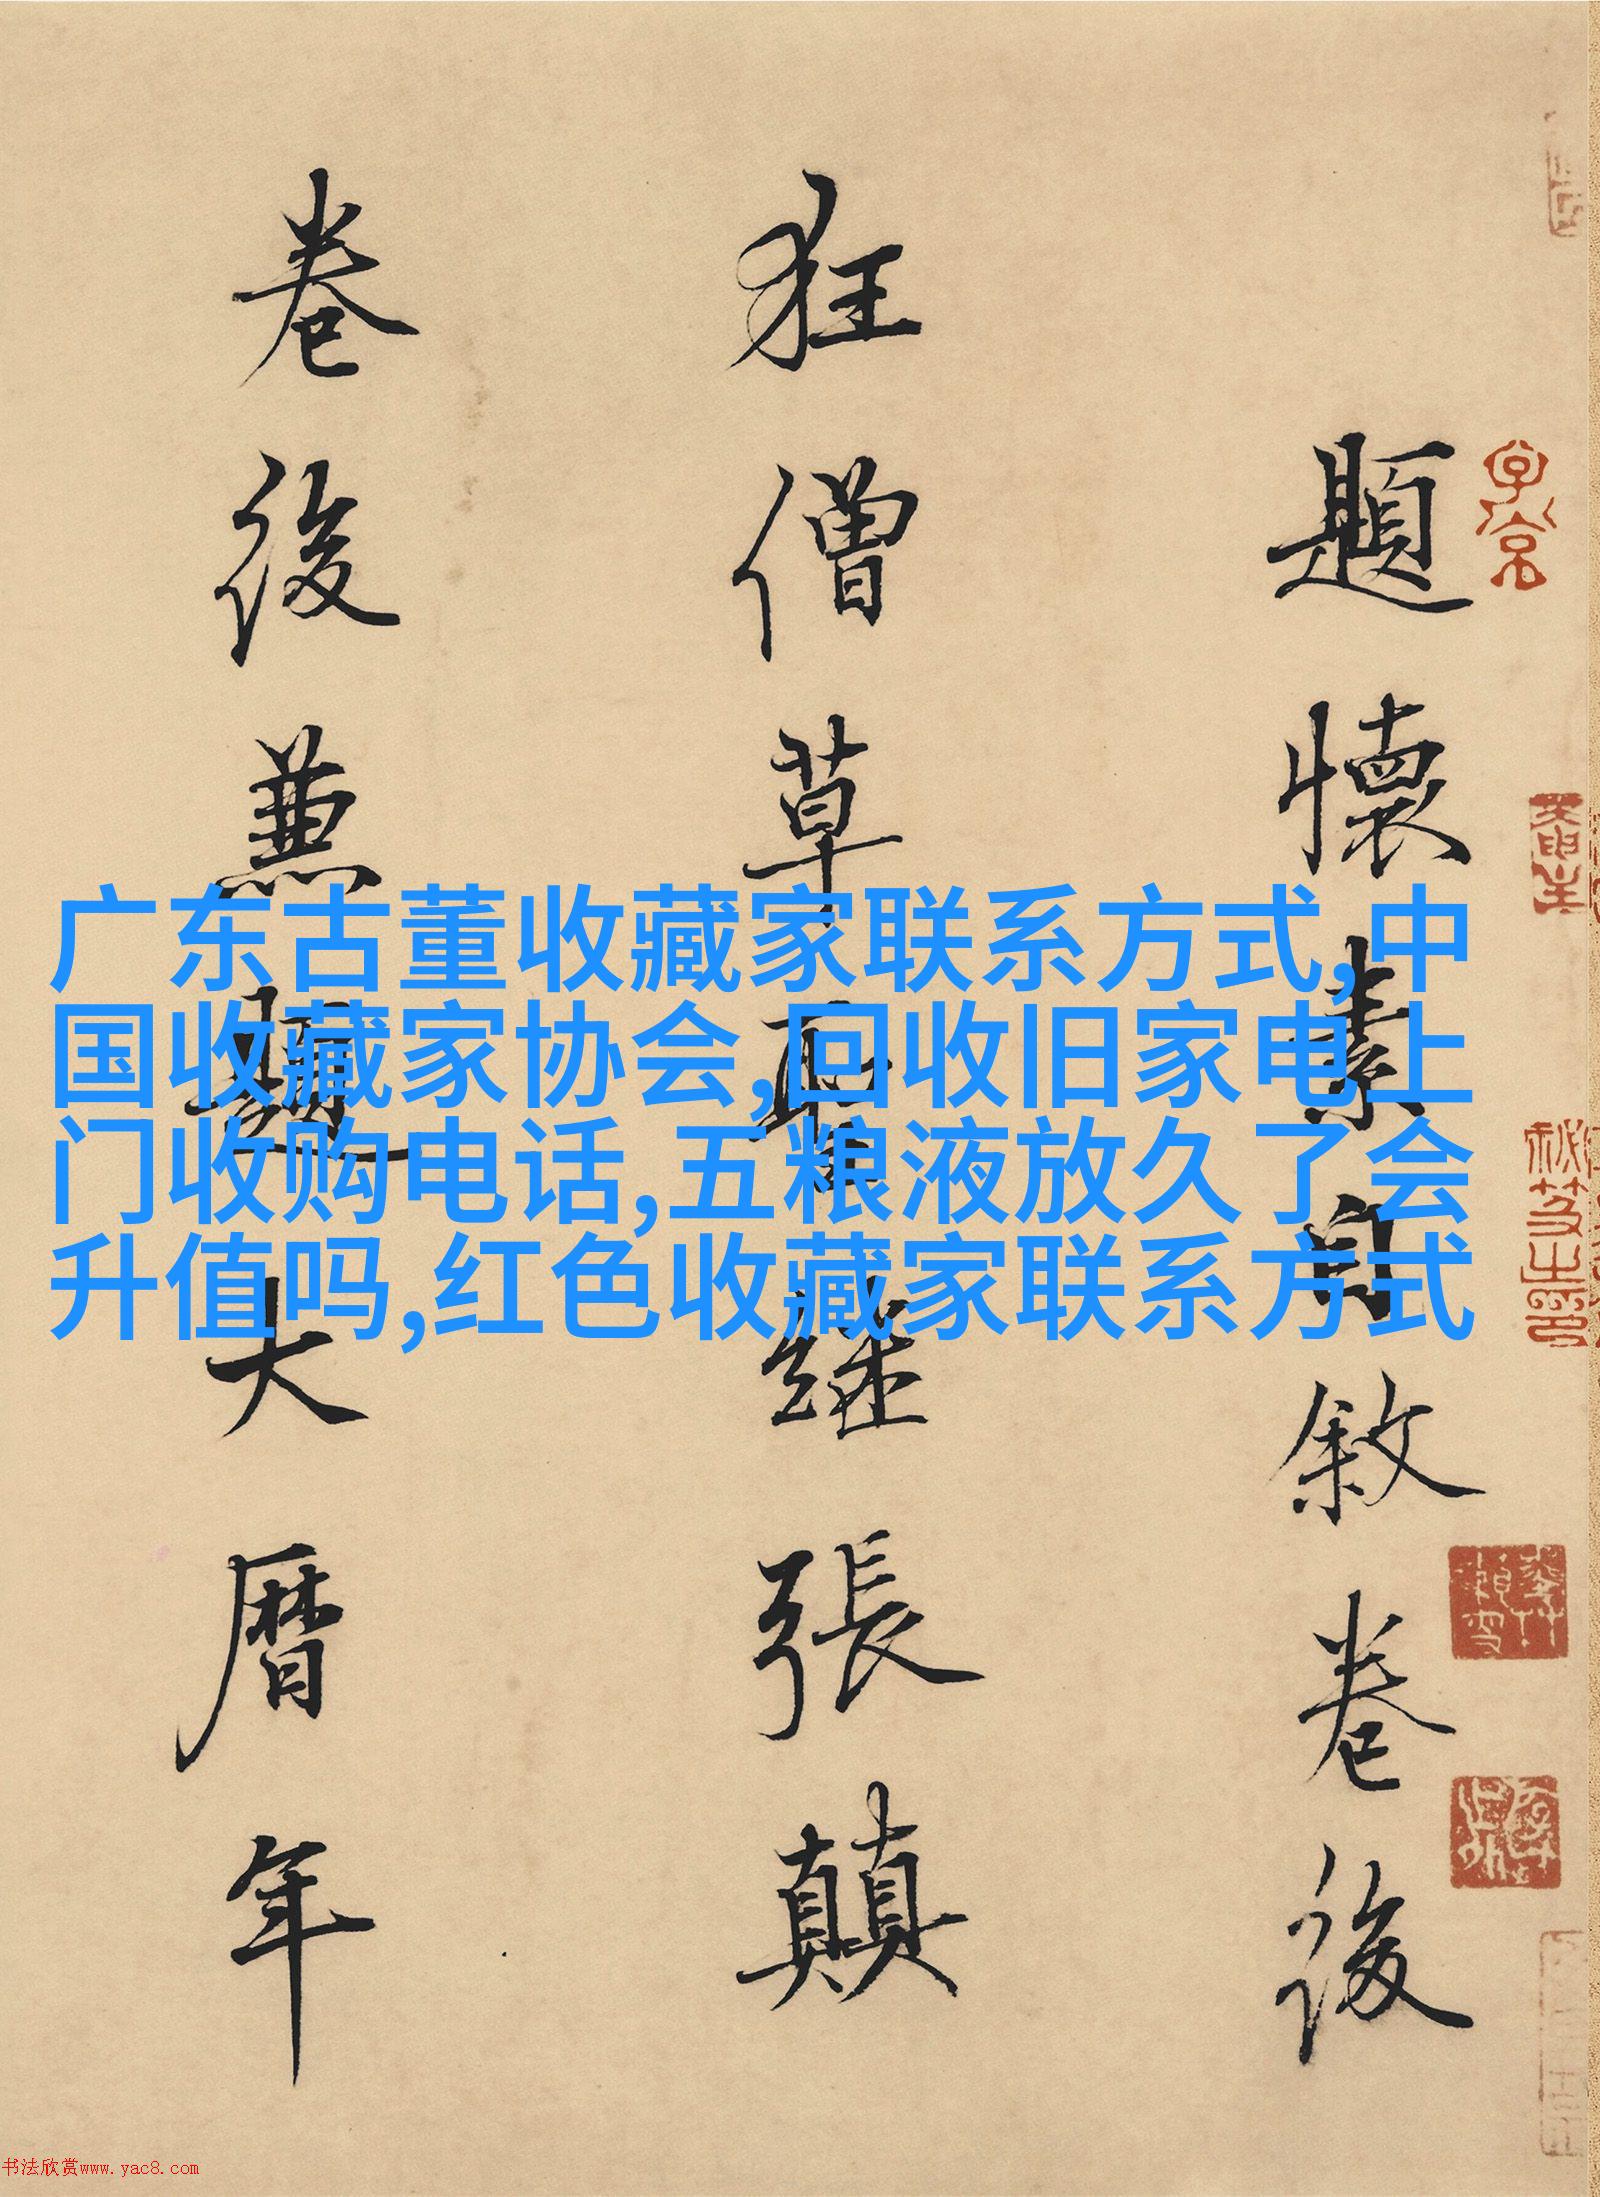 题懷素自敘卷後
狂僧草聖繼張顛
卷後兼題大曆年
广东古董收藏家联系方式,中
国收藏家协会,回收旧家电上
门收购电话,五粮液放久了会
升值吗,红色收藏家联系方式
书法欣赏www.yac8.com